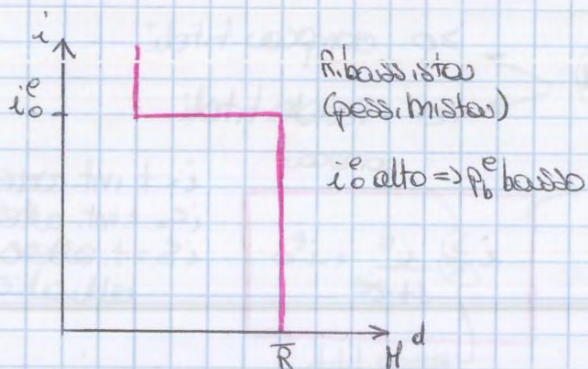 i
i₀ᵉ
Ribassista
(pessimista)
i₀ᵉ alto => p_bᵉ basso
R̅
Mᵈ